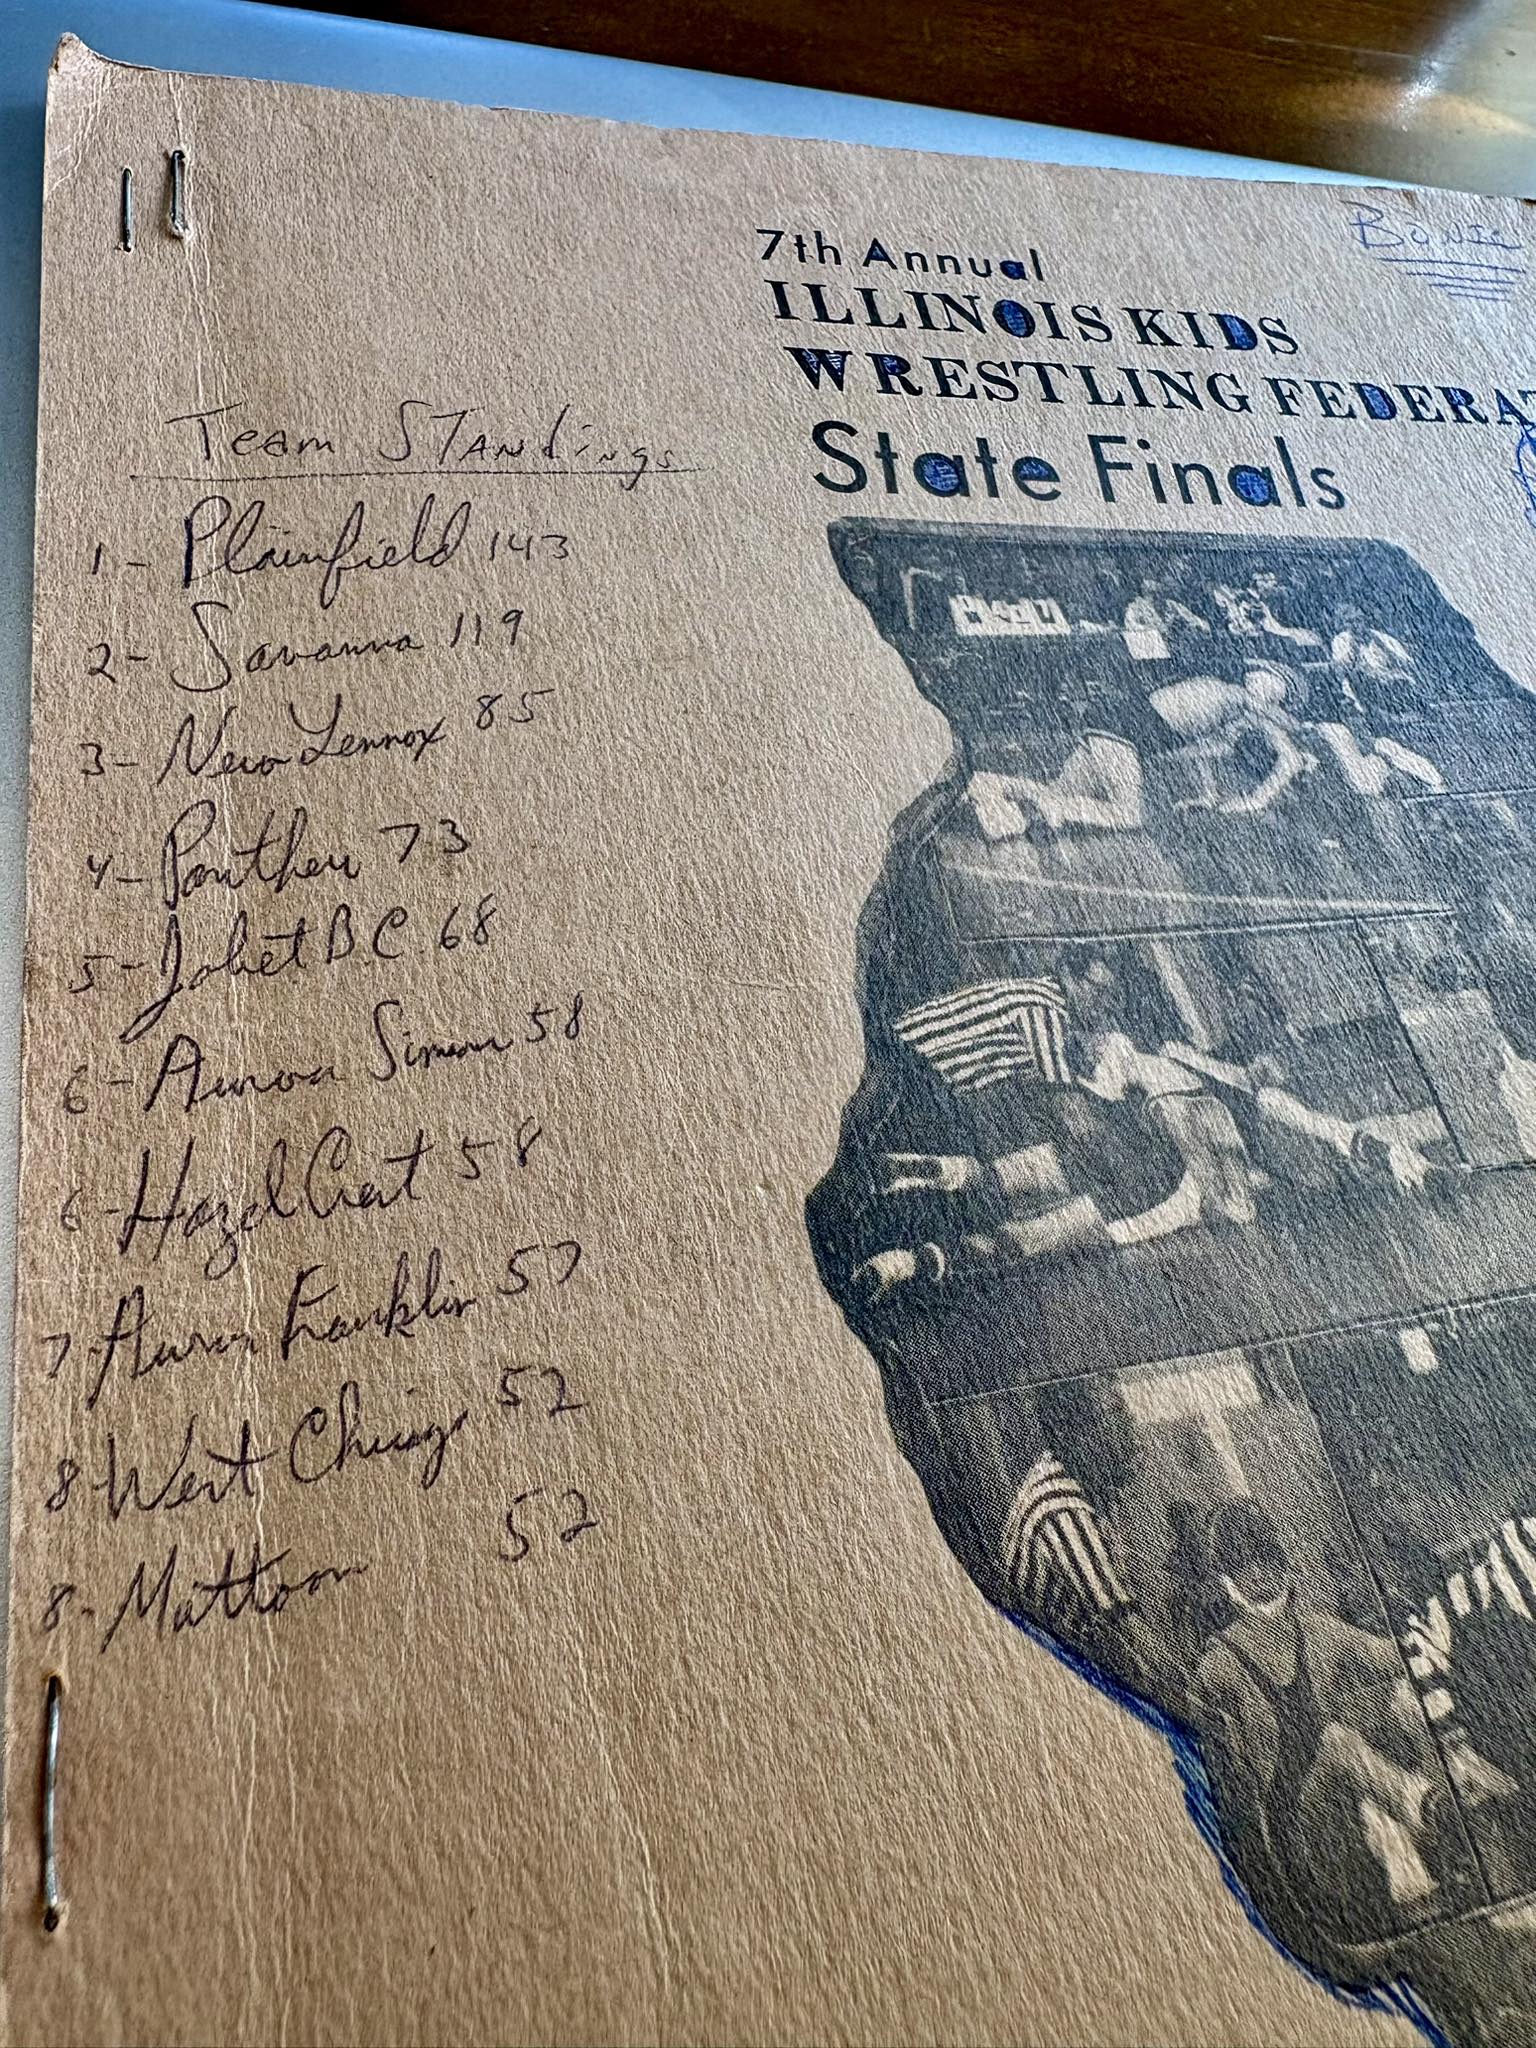 7th Annual
ILLINOIS KIDS
WRESTLING FEDERAT
State Finals
Team Standings
1 - Plainfield 143
2 - Savanna 119
3 - New Lennox 85
4 - Panther 73
5 - Joliet B.C. 68
6 - Aurora Simeon 58
6 - Hazel Crest 58
7 - Aurora Franklin 57
8 - West Chicago 52
8 - Mattoon 52